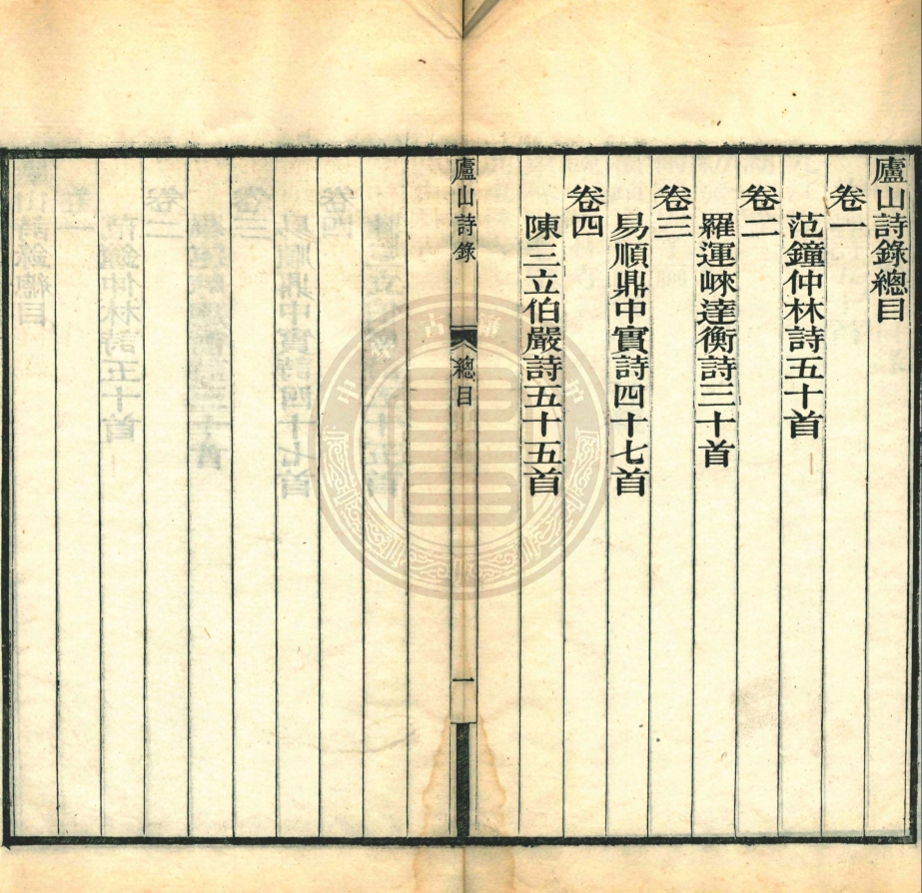 廬山詩錄總目
卷一
范鐘仲林詩五十首
卷二
羅運崍達衡詩三十首
卷三
易順鼎中實詩四十七首
卷四
陳三立伯嚴詩五十五首
廬山詩錄
總目
一